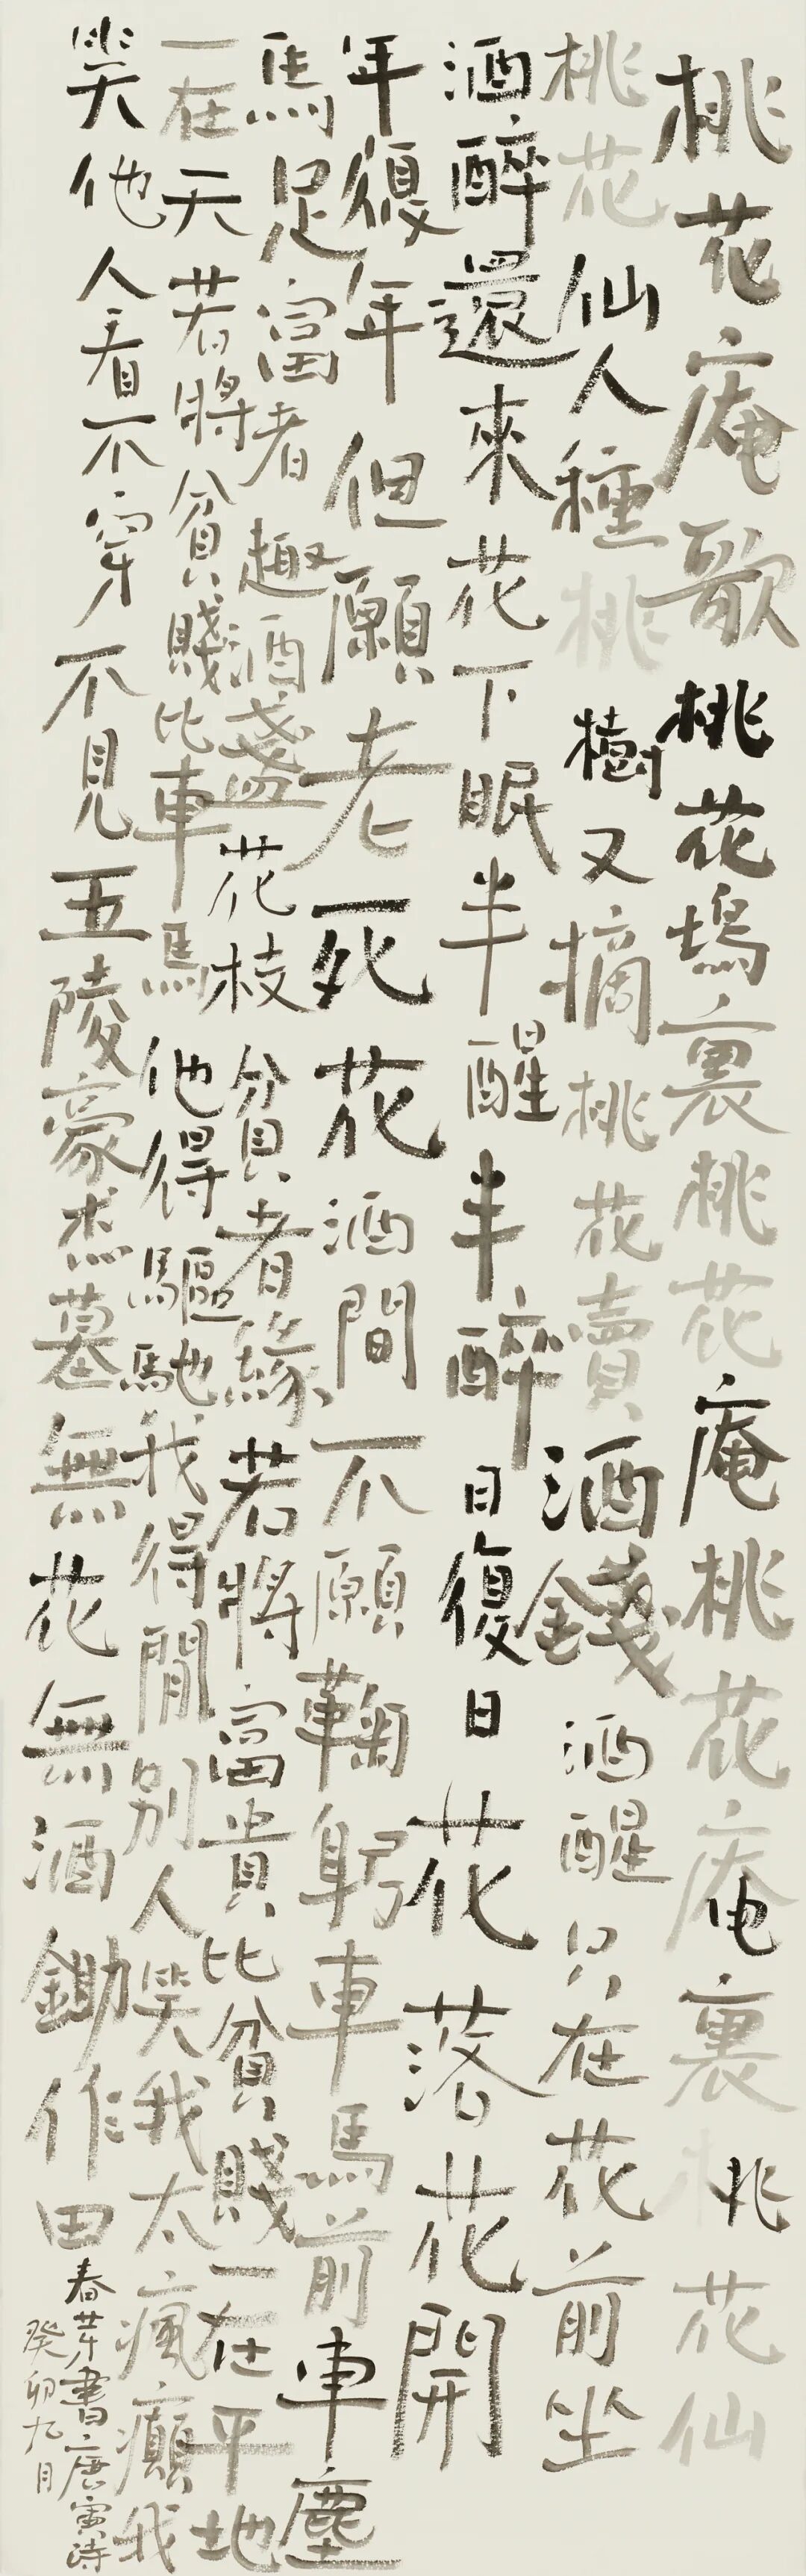 桃花庵歌桃花塢裏桃花庵桃花庵裏桃花仙
桃花仙人種桃樹又摘桃花賣酒錢酒醒只在花前坐
酒醉還來花下眠半醒半醉日復日花落花開
年復年但願老死花酒間不願鞠躬車馬前車塵
馬足富者趣酒盞花枝貧者緣若將富貴比貧賤一在平地
一在天若將貧賤比車馬他得驅馳我得閒別人笑我太瘋癲我
笑他人看不穿不見五陵豪杰墓無花無酒鋤作田
春芽書唐寅詩
癸卯九月